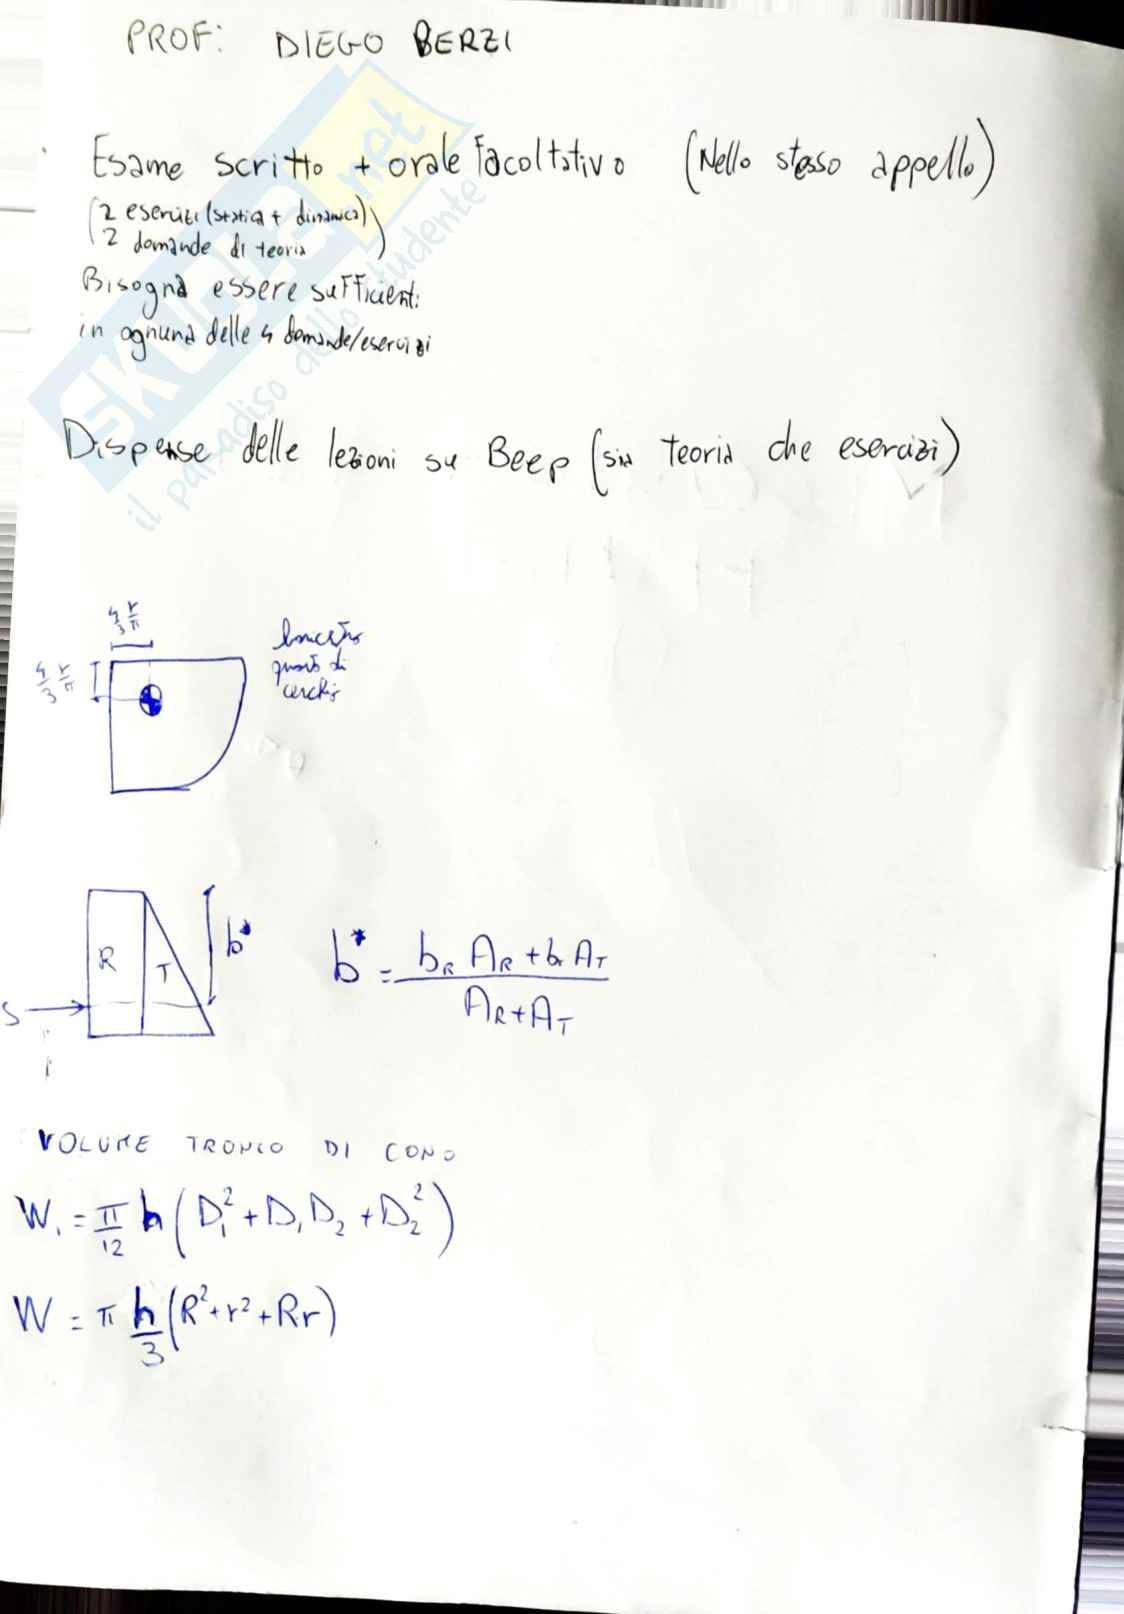 PROF: DIEGO BERZI
Esame scritto + orale facoltativo (Nello stesso appello)
(2 esercizi (statica + dinamica)
2 domande di teoria)
Bisogna essere sufficienti
in ognuna delle 4 domande/esercizi
Dispense delle lezioni su Beep (sia teoria che esercizi)
SKUOLA.net
il paradiso dello studente
4/3 r/π
4/3 r/π
baricentro
quarto di
cerchio
R
T
b*
S
b* = (b_R A_R + b_T A_T) / (A_R + A_T)
VOLUME TRONCO DI CONO
W₁ = π/12 h (D₁² + D₁D₂ + D₂²)
W = π h/3 (R² + r² + Rr)